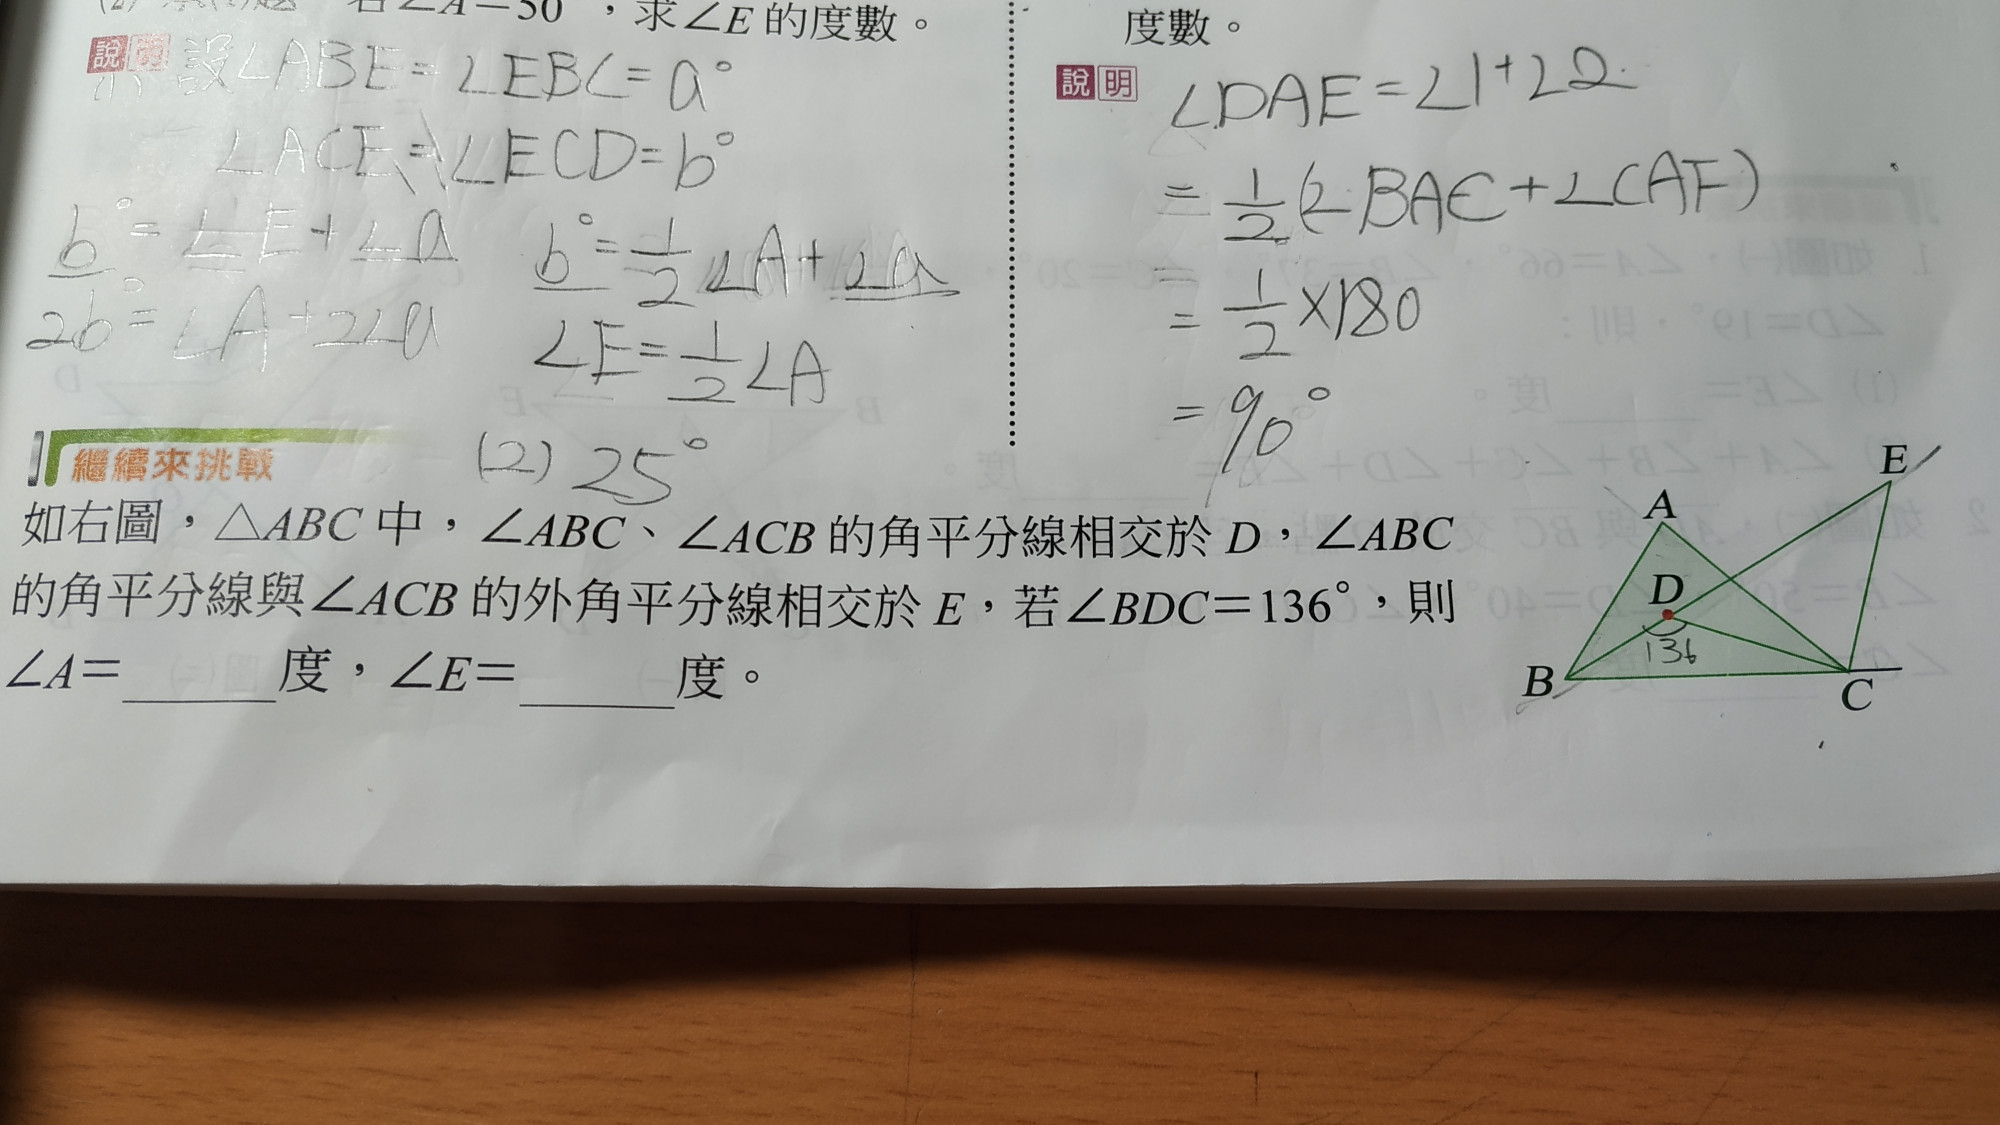 若∠A=50°,求∠E的度數。
說明 設∠ABE=∠EBC=a°
∠ACE=∠ECD=b°
b°=∠E+∠a
2b°=∠A+2∠a
b°=1/2∠A+∠a
∠E=1/2∠A
(2) 25°
度數。
說明 ∠DAE=∠1+∠2
=1/2(∠BAC+∠CAF)
=1/2×180
=90°
繼續來挑戰
如右圖,△ABC中,∠ABC、∠ACB的角平分線相交於D,∠ABC
的角平分線與∠ACB的外角平分線相交於E,若∠BDC=136°,則
∠A=______度,∠E=______度。
E
A
D
136
B
C